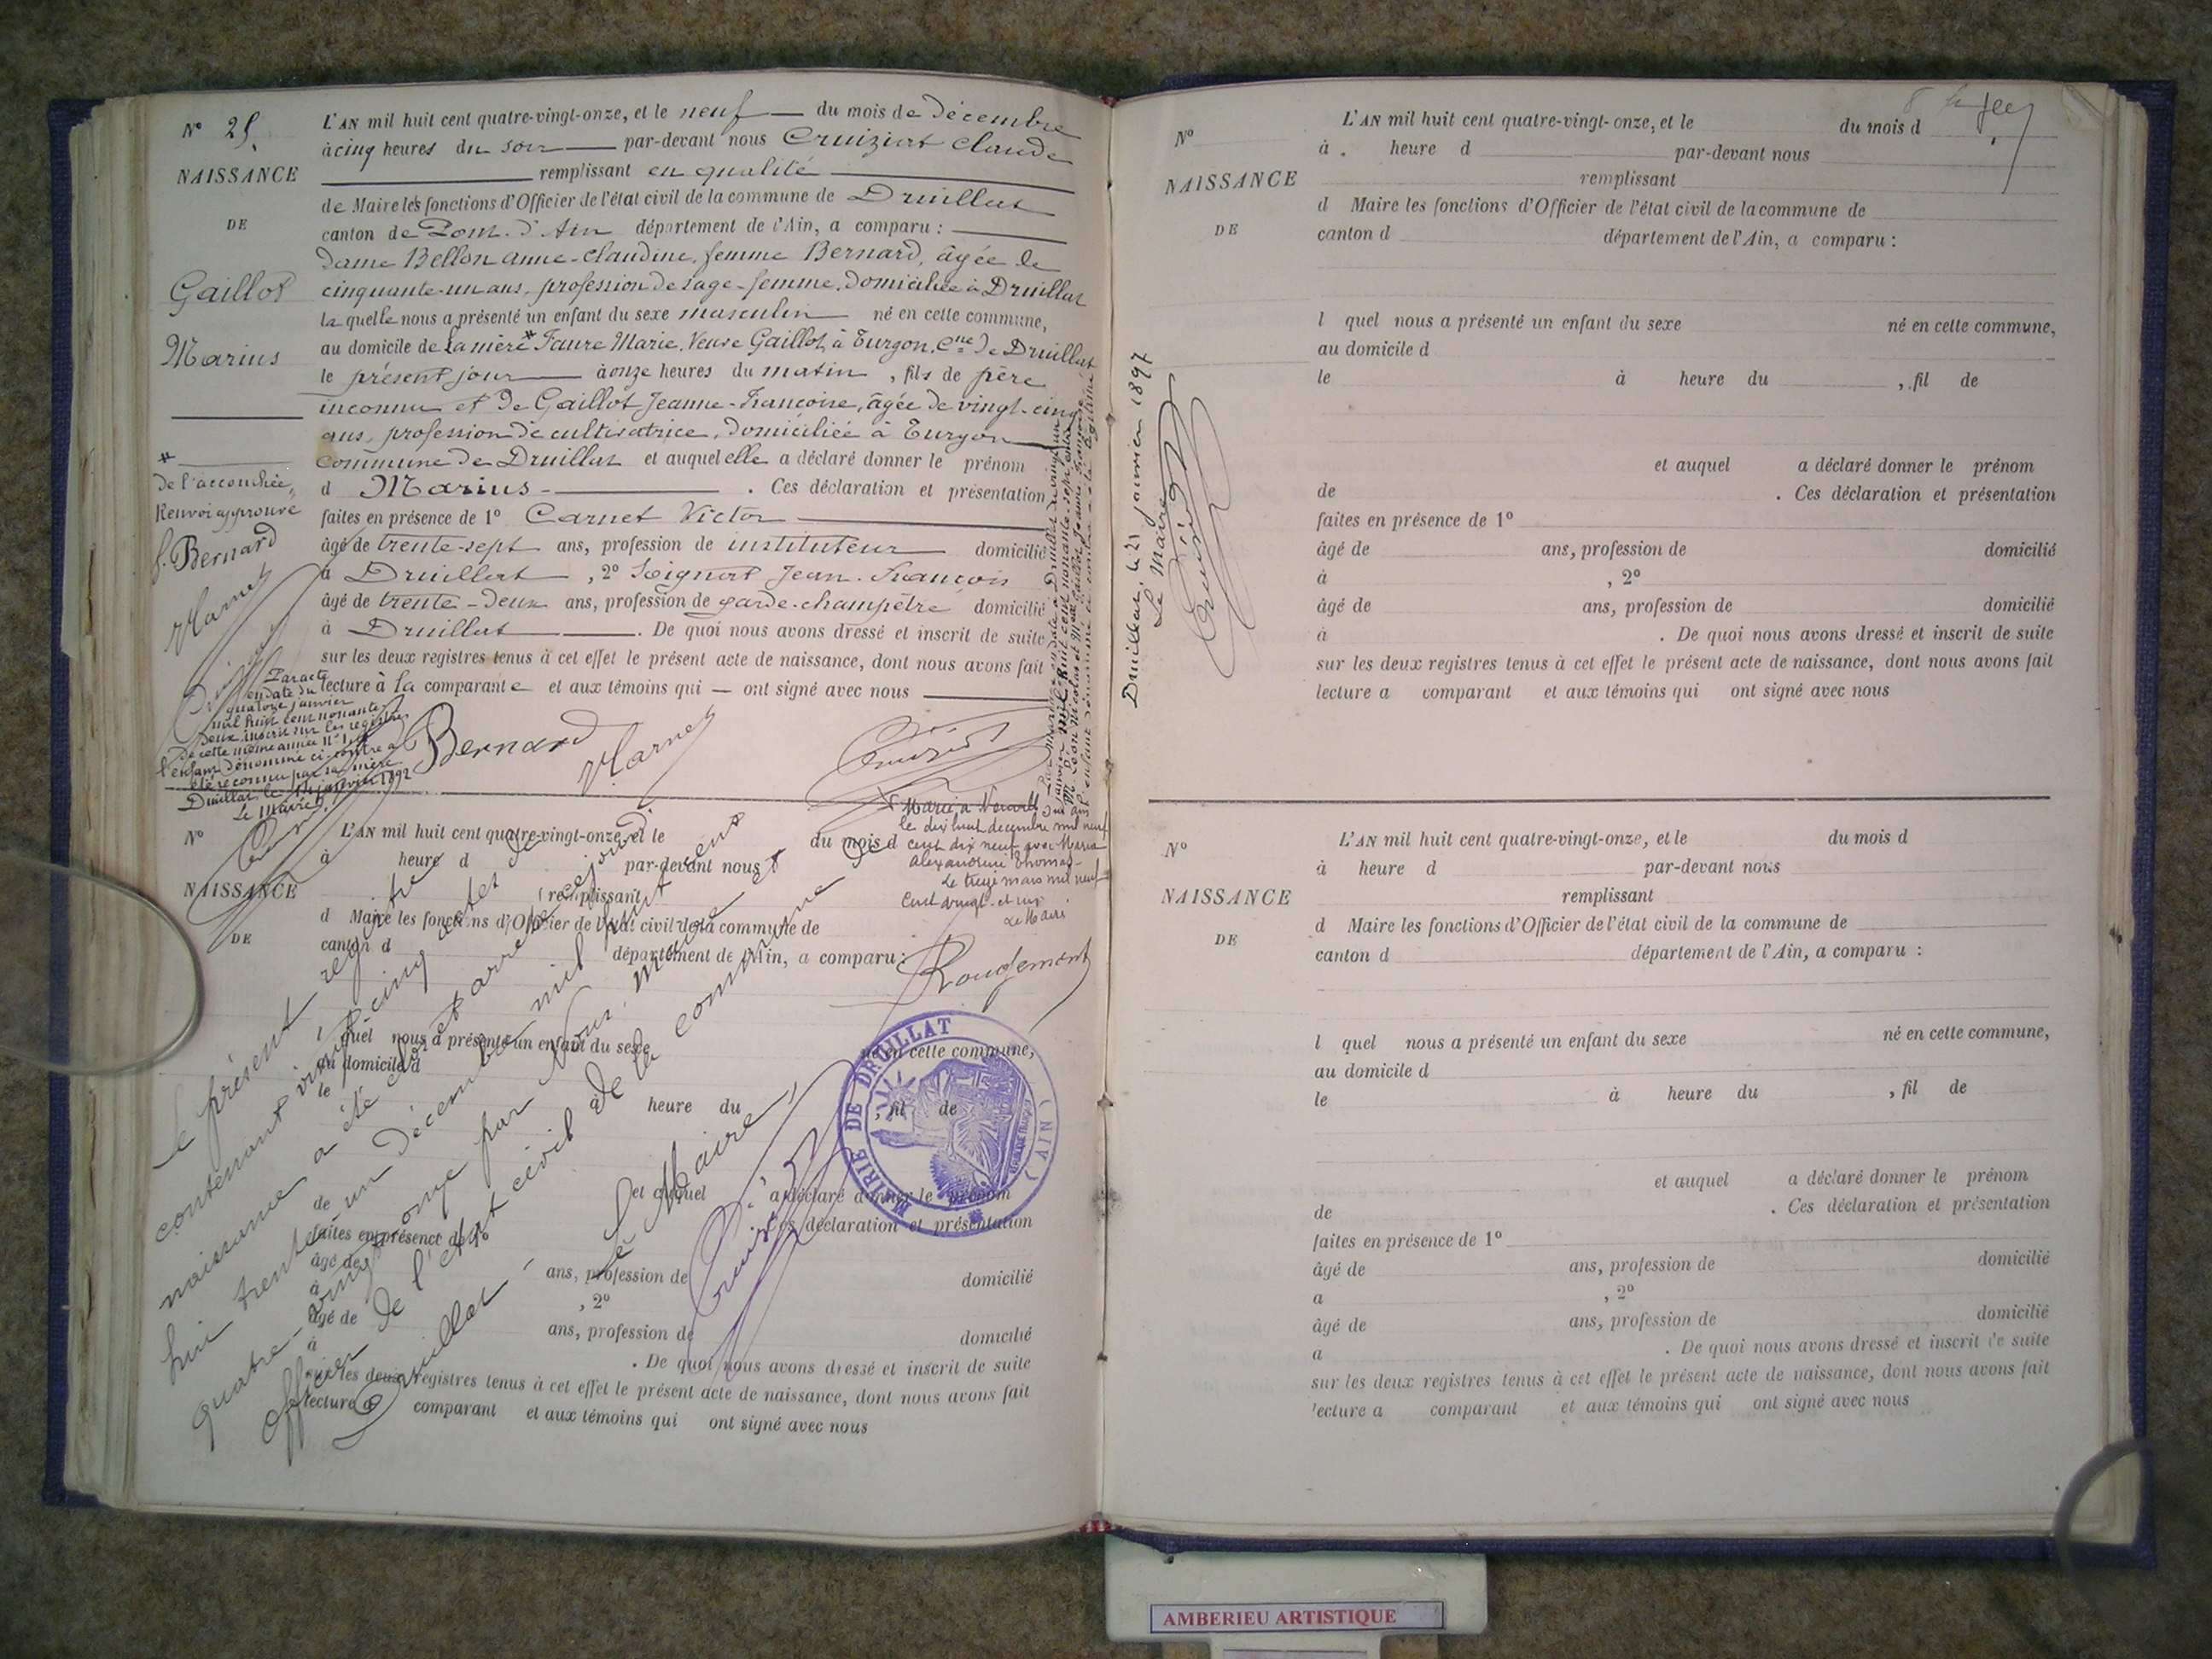 N° 25
NAISSANCE
DE
Gaillot
Marius
L'AN mil huit cent quatre-vingt-onze, et le neuf du mois de Décembre
à cinq heures du soir par-devant nous Cruiziat Claude
remplissant en qualité
de Maire les fonctions d'Officier de l'état civil de la commune de Druillat
canton de Pont-d'Ain département de l'Ain, a comparu :
Dame Bellon Anne-Claudine, femme Bernard, âgée de
cinquante-un ans, profession de sage-femme, domiciliée à Druillat
laquelle nous a présenté un enfant du sexe masculin né en cette commune,
au domicile de la mère * Faure Marie, Veuve Gaillot, à Turgon, Cne de Druillat
le présent jour à onze heures du matin, fils de père
inconnu et de Gaillot Jeanne-Françoise, âgée de vingt-cinq
ans, profession de cultivatrice, domiciliée à Turgon
commune de Druillat et auquel elle a déclaré donner le prénom
d Marius. Ces déclaration et présentation
faites en présence de 1° Carnet Victor
âgé de trente-sept ans, profession de instituteur domicilié
à Druillat, 2° Soignat Jean-François
âgé de trente-deux ans, profession de garde-champêtre domicilié
à Druillat. De quoi nous avons dressé et inscrit de suite
sur les deux registres tenus à cet effet le présent acte de naissance, dont nous avons fait
lecture à la comparante et aux témoins qui — ont signé avec nous
* de l'accouchée,
Renvoi approuvé
f. Bernard
V Carnet
Par acte
en date du
quatorze janvier
mil huit cent nonante
deux inscrit sur les registres
de cette même année N° 1
l'enfant dénommé ci-contre a
été reconnu par sa mère
Druillat, le 14 janvier 1892
Le Maire,
Bernard
V Carnet
Cruiziat
Marié à
le dix huit décembre mil neuf
cent dix neuf avec Maria
Alexandrine Thomas
Le treize mars mil neuf
cent vingt et un
Le Maire
Rougemont
N°
NAISSANCE
DE
L'AN mil huit cent quatre-vingt-onze, et le du mois d
à heure d par-devant nous
remplissant
d Maire les fonctions d'Officier de l'état civil de la commune de
canton d département de l'Ain, a comparu :
l quel nous a présenté un enfant du sexe né en cette commune,
au domicile d
le à heure du , fil de
et auquel a déclaré donner le prénom
de . Ces déclaration et présentation
faites en présence de 1°
âgé de ans, profession de domicilié
à , 2°
âgé de ans, profession de domicilié
à . De quoi nous avons dressé et inscrit de suite
sur les deux registres tenus à cet effet le présent acte de naissance, dont nous avons fait
lecture a comparant et aux témoins qui ont signé avec nous
Le présent registre
contenant vingt-cinq actes de
naissance a été clos et arrêté aujourd'
hui trente-un Décembre mil huit cent
quatre-vingt-onze par Nous, Maire et
Officier de l'état civil de la commune de
Druillat
Le Maire,
Cruiziat
MAIRIE DE DRUILLAT
(AIN)
Druillat, le 21 janvier 1897
Le Maire
Cruiziat
N°
NAISSANCE
DE
L'AN mil huit cent quatre-vingt-onze, et le du mois d
à heure d par-devant nous
remplissant
d Maire les fonctions d'Officier de l'état civil de la commune de
canton d département de l'Ain, a comparu :
l quel nous a présenté un enfant du sexe né en cette commune,
au domicile d
le à heure du , fil de
et auquel a déclaré donner le prénom
de . Ces déclaration et présentation
faites en présence de 1°
âgé de ans, profession de domicilié
à , 2°
âgé de ans, profession de domicilié
à . De quoi nous avons dressé et inscrit de suite
sur les deux registres tenus à cet effet le présent acte de naissance, dont nous avons fait
lecture a comparant et aux témoins qui ont signé avec nous
N°
NAISSANCE
DE
L'AN mil huit cent quatre-vingt-onze, et le du mois d
à heure d par-devant nous
remplissant
d Maire les fonctions d'Officier de l'état civil de la commune de
canton d département de l'Ain, a comparu :
l quel nous a présenté un enfant du sexe né en cette commune,
au domicile d
le à heure du , fil de
et auquel a déclaré donner le prénom
de . Ces déclaration et présentation
faites en présence de 1°
âgé de ans, profession de domicilié
a , 2°
âgé de ans, profession de domicilié
a . De quoi nous avons dressé et inscrit de suite
sur les deux registres tenus à cet effet le présent acte de naissance, dont nous avons fait
lecture a comparant et aux témoins qui ont signé avec nous
AMBERIEU ARTISTIQUE